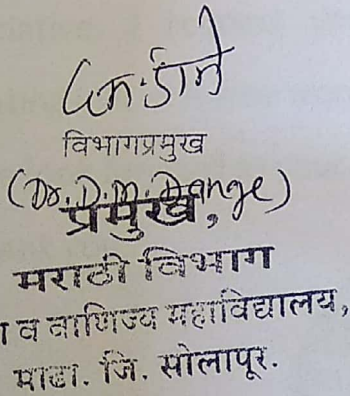 विभागप्रमुख
(Dr. D. M. Dange)
प्रमुख,
मराठी विभाग
व वाणिज्य महाविद्यालय,
माढा. जि. सोलापूर.